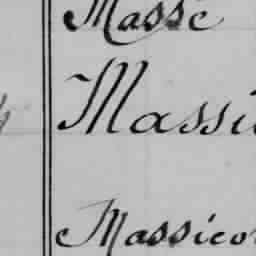 Massé
Massi
Massico